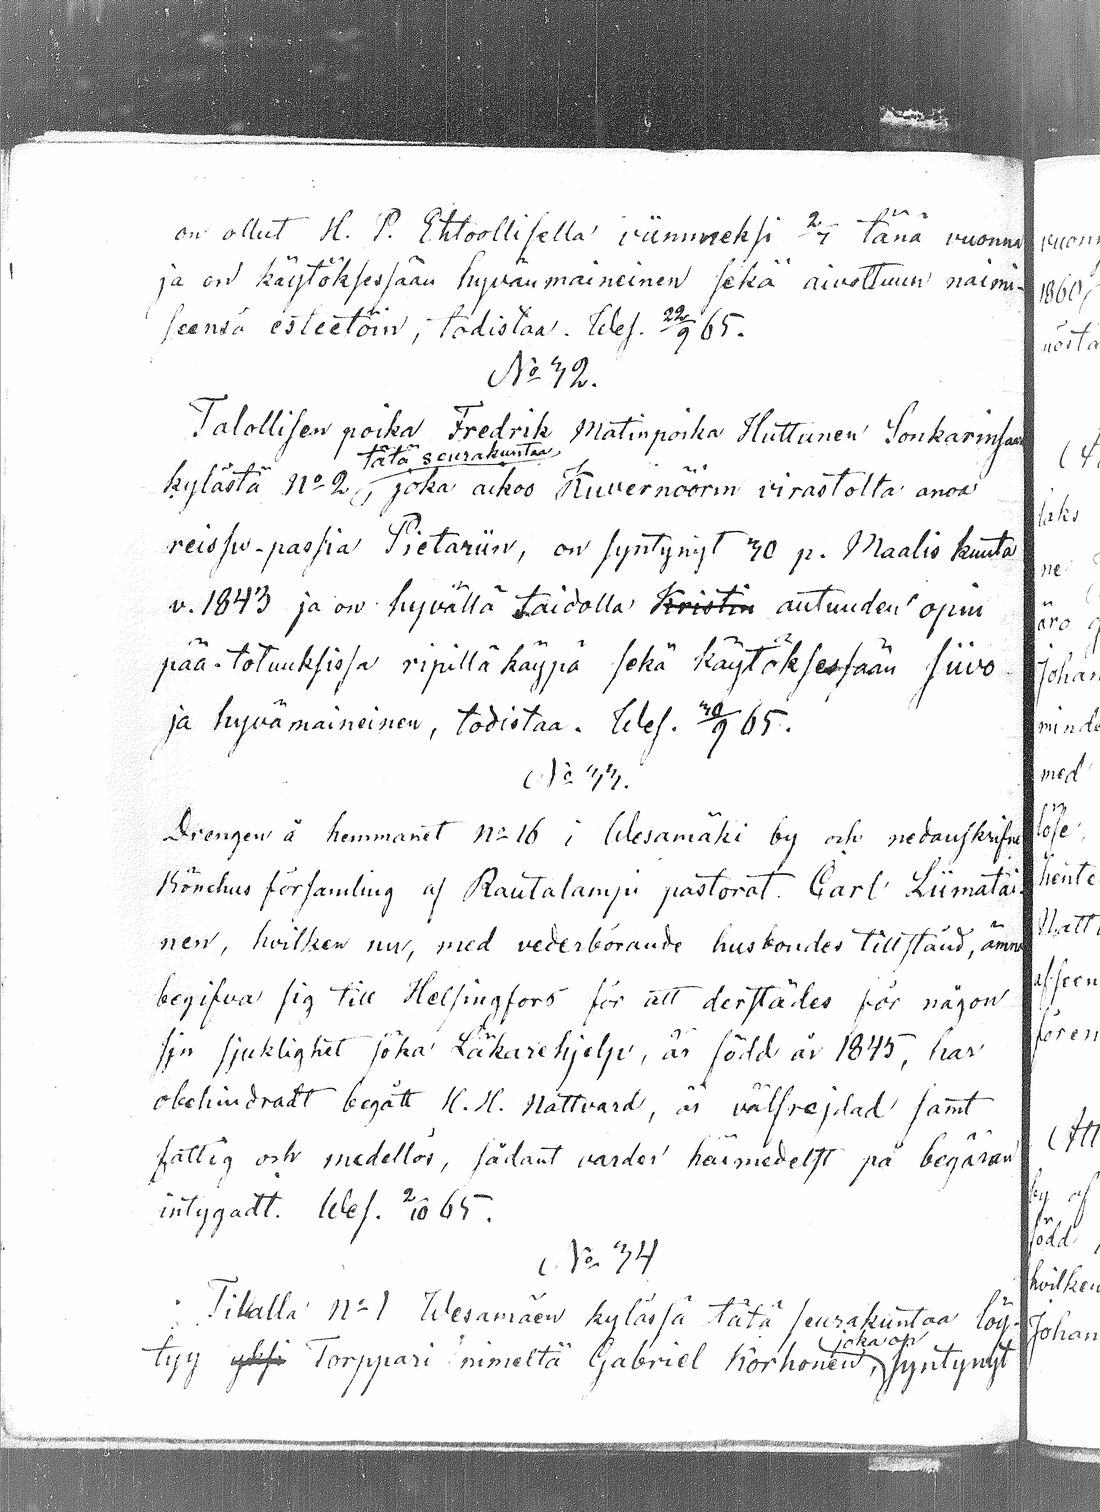 on ollut H. P. Ehtoollisella viimmeksi 2/7 tänä vuonna
ja on käytöksessään hyvänmaineinen sekä aivottuun naimi-
seensa esteetöin, todistaa. Wes. 22/9 65.
No 32.
Talollisen poika Fredrik Matinpoika Huttunen Sonkarinsaa
tätä seurakuntaa
kylästä No 2, joka aikoo Kuvernöörin virastolta anoa
reissu-passia Pietariin, on syntynyt 30 p. Maalis kuuta
v. 1843 ja on hyvällä taidolla Kristin autuuden opin
pää-totuuksissa ripillä käypä sekä käytöksessään siivo
ja hyvämaineinen, todistaa. Wes. 30/9 65.
No 33.
Drengen å hemmanet No 16 i Wesamäki by och nedanskrifne
Könchus församling af Rautalampi pastorat. Carl Liimatai-
nen, hvilken nu, med vederbörande husbondes tillstånd, ämna
begifva sig till Helsingfors för att derstädes för någon
sin sjuklighet söka Läkarehjelp, är född år 1845, har
obehindradt begått H. H. Nattvard, är välfrejdad samt
fattig och medellös, sådant varder härmedelst på begäran
intygadt. Wes. 2/10 65.
No 34
Tilalla No 1 Wesamäen kylässä tätä seurakuntaa löy-
joka on
tyy yksi Torppari nimeltä Gabriel Korhonen, syntynyt
vuonn
1860
nösta
saks
ne
äro
Johan
minde
med
löse,
hente
Natt
afseen
fören
(Att
by af
född
hvilken
Johan